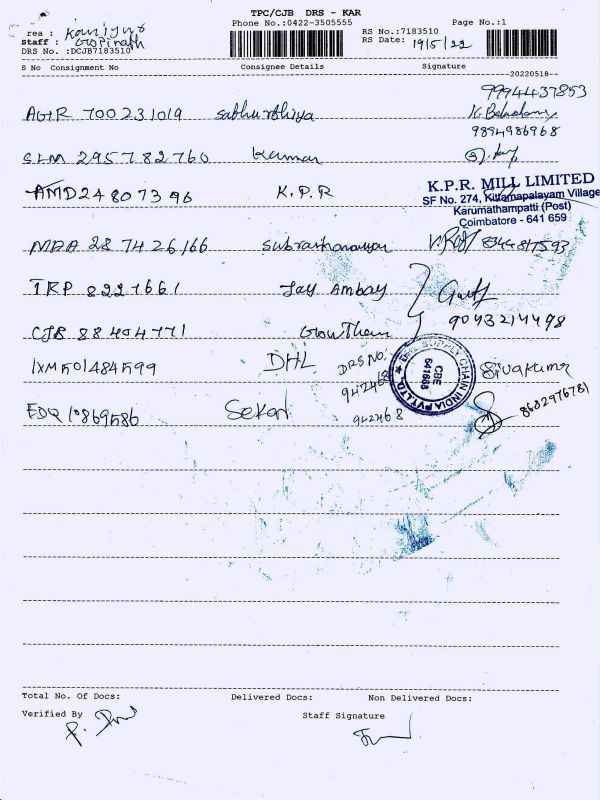 TPC/CJB DRS - KAR
Phone No.:0422-3505555
Page No.:1
rea :
Staff : Gopinath
DRS No. :DCJB7183510
RS No.:7183510
RS Date: 19/5/22
S No Consignment No Consignee Details Signature
--20220518--
9994437853
AGTR 700231019
9894986968
SLM 295782760 Kannan
AMD248073996 K.P.R
K.P.R. MILL LIMITED
SF No. 274, Kittampalayam Village
Karumathampatti (Post)
Coimbatore - 641 659
MAA 287426166
TRP 8221661 Jay Ambay
9043214498
CJB 88404771 Gowtham
IXM501484599 DHL DRS NO: 942468 Sivakumar
SUPPLY CHAIN INDIA PVT.LTD. CBE 641668
EDQ 10869586 Sekar 942468 8682976781
Total No. Of Docs: Delivered Docs: Non Delivered Docs:
Verified By Staff Signature